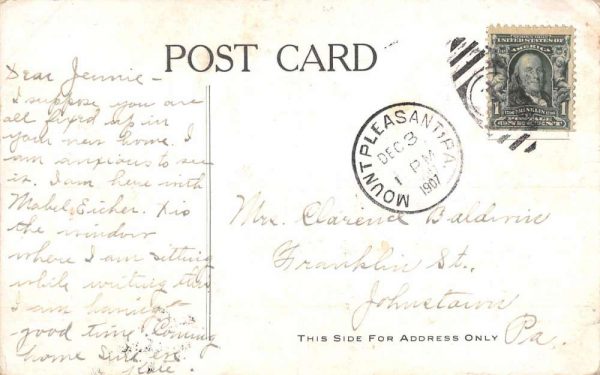 POST CARD
Dear Jennie –
I suppose you are
all fixed up in
your new home. I
am anxious to see
it. I am here with
Mabel Eicher. X is
the window
where I am sitting
while writing this
I am having
good time. Coming
home Sure
MOUNT PLEASANT, PA.
DEC 3
1 PM
1907
UNITED STATES OF
FRANKLIN
1 1
POSTAGE
ONE CENT
Mrs. Clarence Baldwin
Franklin St.,
Johnstown
Pa.
THIS SIDE FOR ADDRESS ONLY